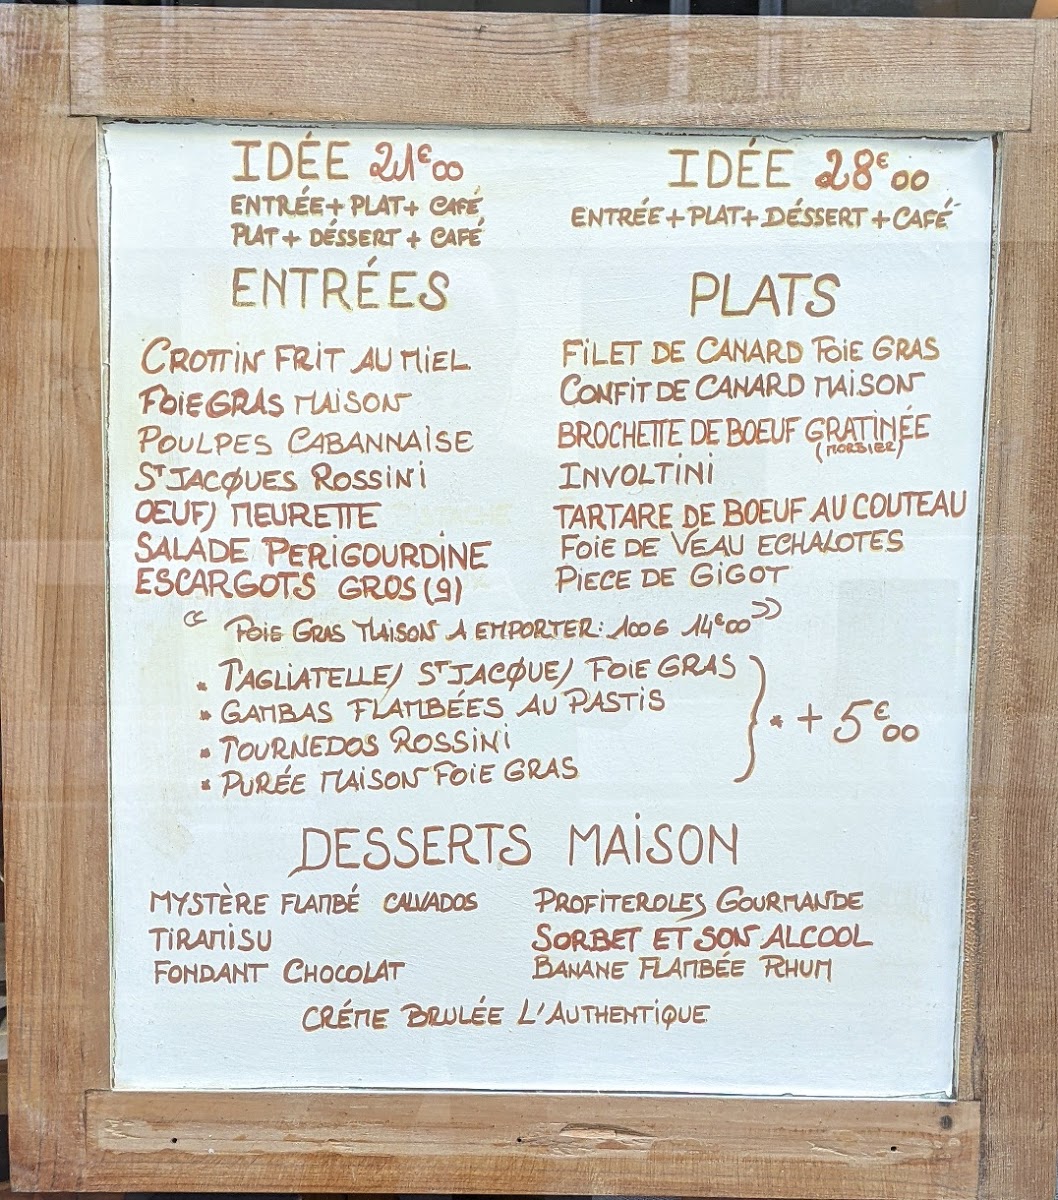 IDÉE 21€00
ENTRÉE + PLAT + CAFÉ
PLAT + DÉSSERT + CAFÉ
IDÉE 28€00
ENTRÉE + PLAT + DÉSSERT + CAFÉ
ENTRÉES
CROTTIN FRIT AU MIEL
FOIE GRAS MAISON
POULPES CABANNAISE
ST JACQUES ROSSINI
OEUFS MEURETTE
SALADE PERIGOURDINE
ESCARGOTS GROS (9)
PLATS
FILET DE CANARD FOIE GRAS
CONFIT DE CANARD MAISON
BROCHETTE DE BOEUF GRATINÉE
(MORBIER)
INVOLTINI
TARTARE DE BOEUF AU COUTEAU
FOIE DE VEAU ECHALOTES
PIECE DE GIGOT
« FOIE GRAS MAISON A EMPORTER: 100G 14€00 »
* TAGLIATELLES ST JACQUES FOIE GRAS
* GAMBAS FLAMBÉES AU PASTIS
* TOURNEDOS ROSSINI
* PURÉE MAISON FOIE GRAS
* + 5€00
DESSERTS MAISON
MYSTÈRE FLAMBÉ CALVADOS
TIRAMISU
FONDANT CHOCOLAT
PROFITEROLES GOURMANDE
SORBET ET SON ALCOOL
BANANE FLAMBÉE RHUM
CRÉME BRULÉE L'AUTHENTIQUE